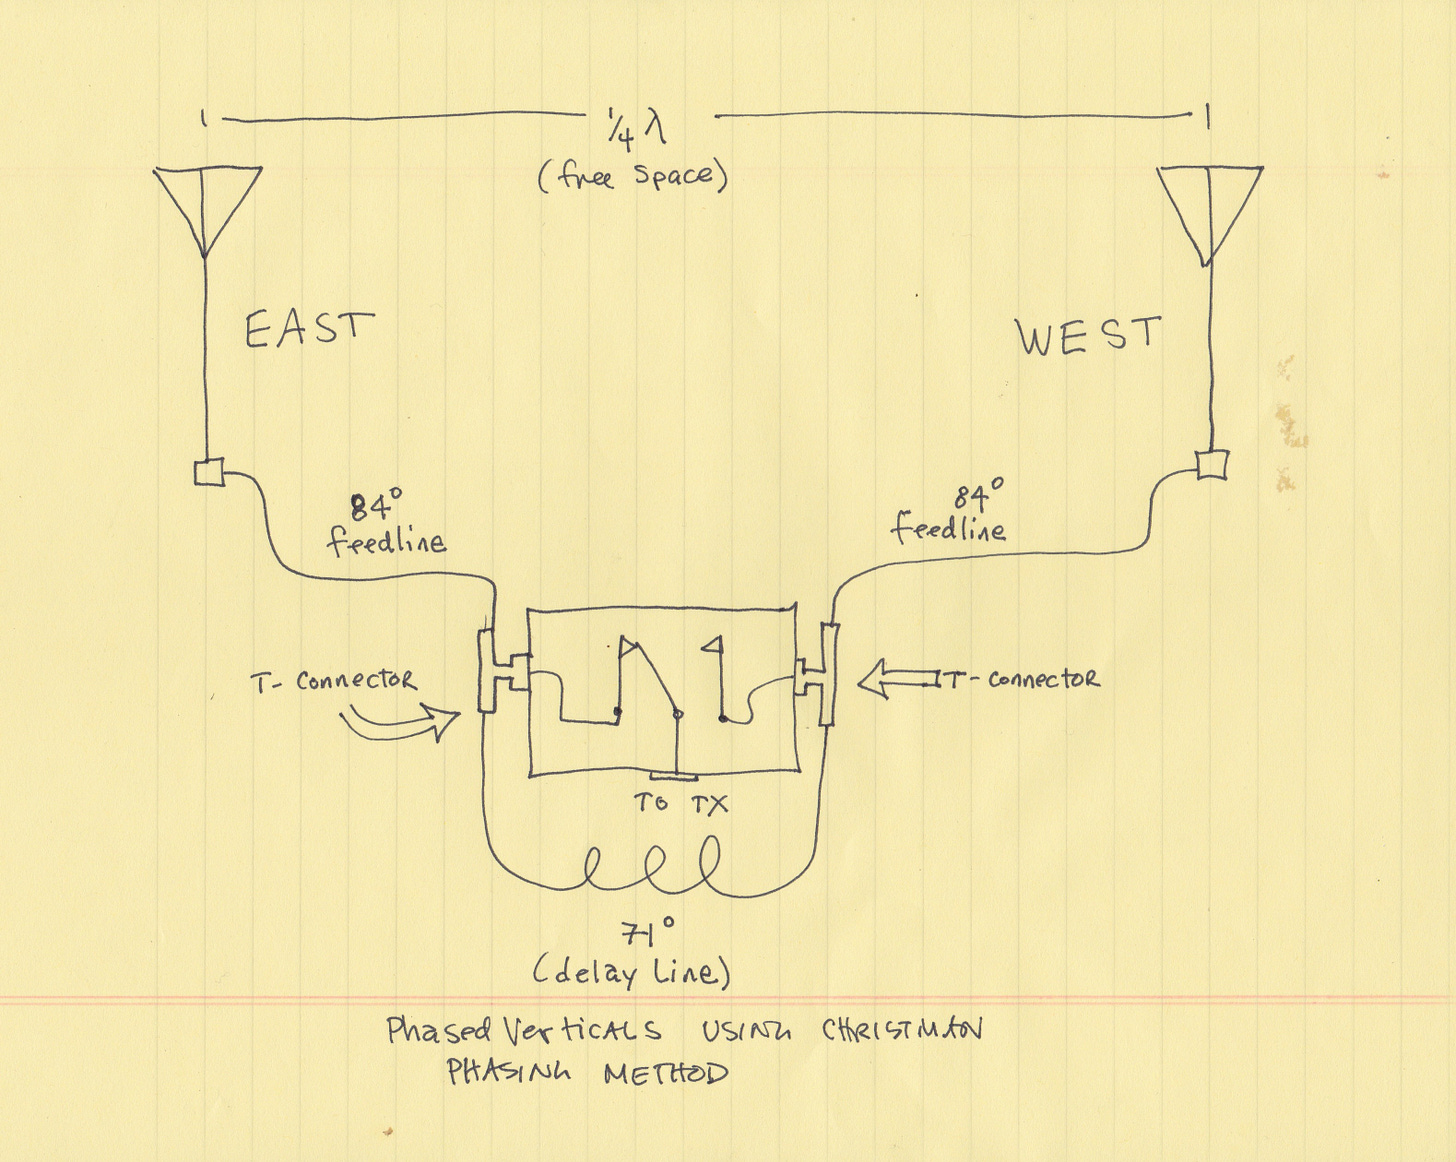 1/4 λ
(free space)
EAST
WEST
84°
feedline
84°
feedline
T-Connector
T-Connector
To TX
71°
(delay Line)
Phased Verticals USING CHRISTMAN
PHASING METHOD